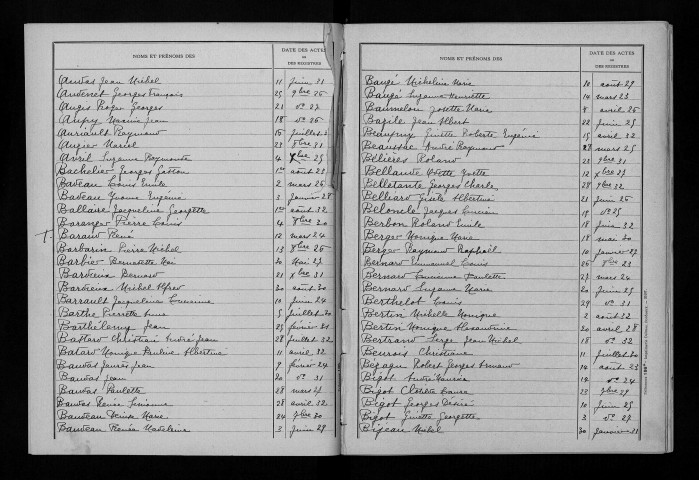 NOMS ET PRÉNOMS DES
DATE DES ACTES
OU
DES REGISTRES
Auvas Jean Michel 11 Juin 21
Audenet Georges François 25 9bre 26
Augis Roger Georges 21 do 27
Aupy Marie Jean 18 do 26
Auriault Raymond 16 Juillet
Augier Marcel 23 8bre 31
Avril Suzanne Raymonde 4 Xbre 25
Bachelier Georges Gaston 1er août 23
Badeau Louis Emile 2 mars 26
Badeau Yvonne Eugénie 3 Janvier 28
Ballaire Jacqueline Georgette 1er août 32
Baranger Pierre Louis 4 8bre 30
Baraud René 12 mars 24
Barbarin Pierre Michel 13 8bre 26
Barbier Bernadette 30 Mai 27
Bardeau Bernard 21 Xbre 31
Michel Alfred 20 août 30
Barrault Jacqueline Lucienne 10 Juin 24
Barthe Pierrette Anne 5 Juillet 30
Barthélemy Jean 25 février 31
Bastard Christian André Jean 28 Juillet 32
Batard Monique Pauline Albertine 11 avril 32
Baudas Jean 9 février 24
Baudas Jean 20 do 31
Baudas Paulette 28 mars
Baudas Renée Simonne 28 avril 32
Baudeau Denise Marie 24 9bre 30
Baudeau Renée Madeleine 3 Juin 29
NOMS ET PRÉNOMS DES
DATE DES ACTES
OU
DES REGISTRES
Baugé Micheline Marie 10 août 29
Baugé Suzanne Henriette 14 mars 23
Baumelou Josette Marie 8 avril 26
Bazile Jean Albert 28 Juin 25
Ginette Roberte Eugénie 15 avril 32
Beaussac André Raymond 23 mars 25
Bélières Roland 23 9bre 31
Bellande Odette Yvette 12 Xbre 27
Belletante Georges Charles 28 9bre 32
Belliard Gisèle Albertine 21 Juin 26
Beloncle Jacques Lucien 19 do 25
Berbon Roland Emile 18 Juin 32
Berger Monique Marie 18 mai 30
Berger Raymond Raphaël 10 Janvier 27
Bernard Emmanuel Louis 26 8bre 23
Bernard Lucienne Paulette 27 mars 24
Bernard Suzanne Marie 20 Juin 25
Berthelot Louis 29 do 31
Bertin Michelle Monique 2 août 32
Bertin Monique Alexandrine 20 avril 28
Bertrand Serge Jean Michel 18 do 32
Beurois Christiane 11 Juillet 30
Robert Georges Armand 14 août 23
Bigot André Maurice 19 do 24
Bigot Clotilde Laure 23 9bre 29
Bigot Georges Désiré 10 Juin 25
Bigot Ginette Georgette 3 do 27
Bijeau Michel 30 Janvier 31